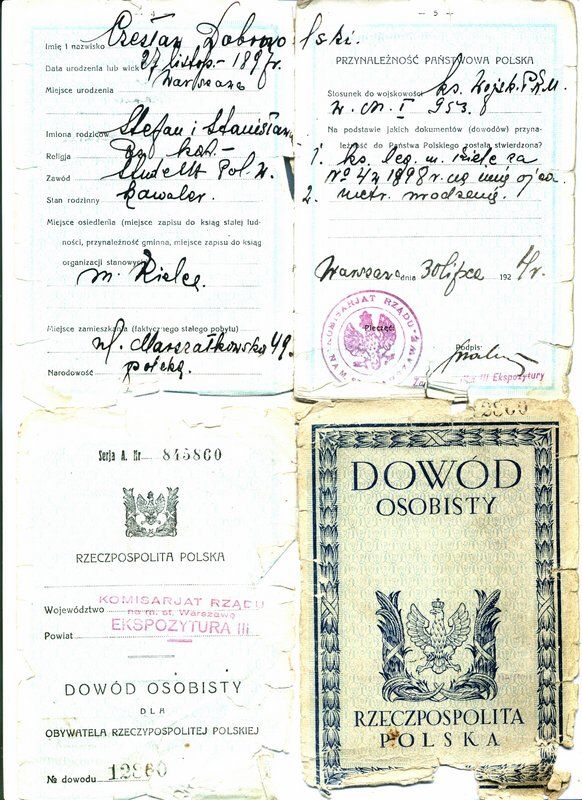 — 4 —
Imię i nazwisko Czesław Dobrowolski.
Data urodzenia lub wiek 27 listop. - 1897 r.
Miejsce urodzenia Warszawa
Imiona rodziców Stefan i Stanisława
Religja rz. kat. -
Zawód Student Pol. W.
Stan rodzinny kawaler.
Miejsce osiedlenia (miejsce zapisu do ksiąg stałej lud-
ności, przynależność gminna, miejsce zapisu do ksiąg
organizacji stanowych)
m. Kielce
Miejsce zamieszkania (faktycznego stałego pobytu)
ul. Marszałkowska 49.
Narodowość polska.
— 5 —
PRZYNALEŻNOŚĆ PAŃSTWOWA POLSKA
Stosunek do wojskowości ks. Wojsk. P.K.U.
W. M. I 953.
Na podstawie jakich dokumentów (dowodów) przyna-
leżność do Państwa Polskiego została stwierdzona?
1. ks. leg. m. Kielc za
№ 42 1898 r. na imię ojca.
2. metr. urodzenia.
Warszawa dnia 30 lipca 1924 r.
KOMISARJAT RZĄDU
Pieczęć
Podpis:
III Ekspozytury
Serja A. Nr 845860
RZECZPOSPOLITA POLSKA
Województwo
KOMISARJAT RZĄDU
na m. st. Warszawę
EKSPOZYTURA III
Powiat
DOWÓD OSOBISTY
DLA
OBYWATELA RZECZYPOSPOLITEJ POLSKIEJ
№ dowodu 12860
12860
DOWÓD
OSOBISTY
RZECZPOSPOLITA
POLSKA